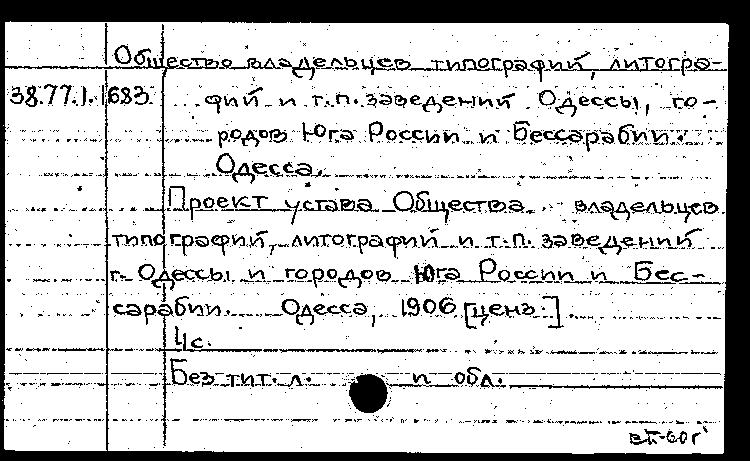 Общество владельцев типографий, литогра-
38.77.1.1683. фий и т.п. заведений Одессы, го-
родов Юга России и Бессарабии.
Одесса.
Проект устава Общества владельцев
типографий, литографий и т.п. заведений
г. Одессы и городов Юга России и Бес-
сарабии. Одесса, 1906 [ценз.].
4с.
Без тит. л. и обл.